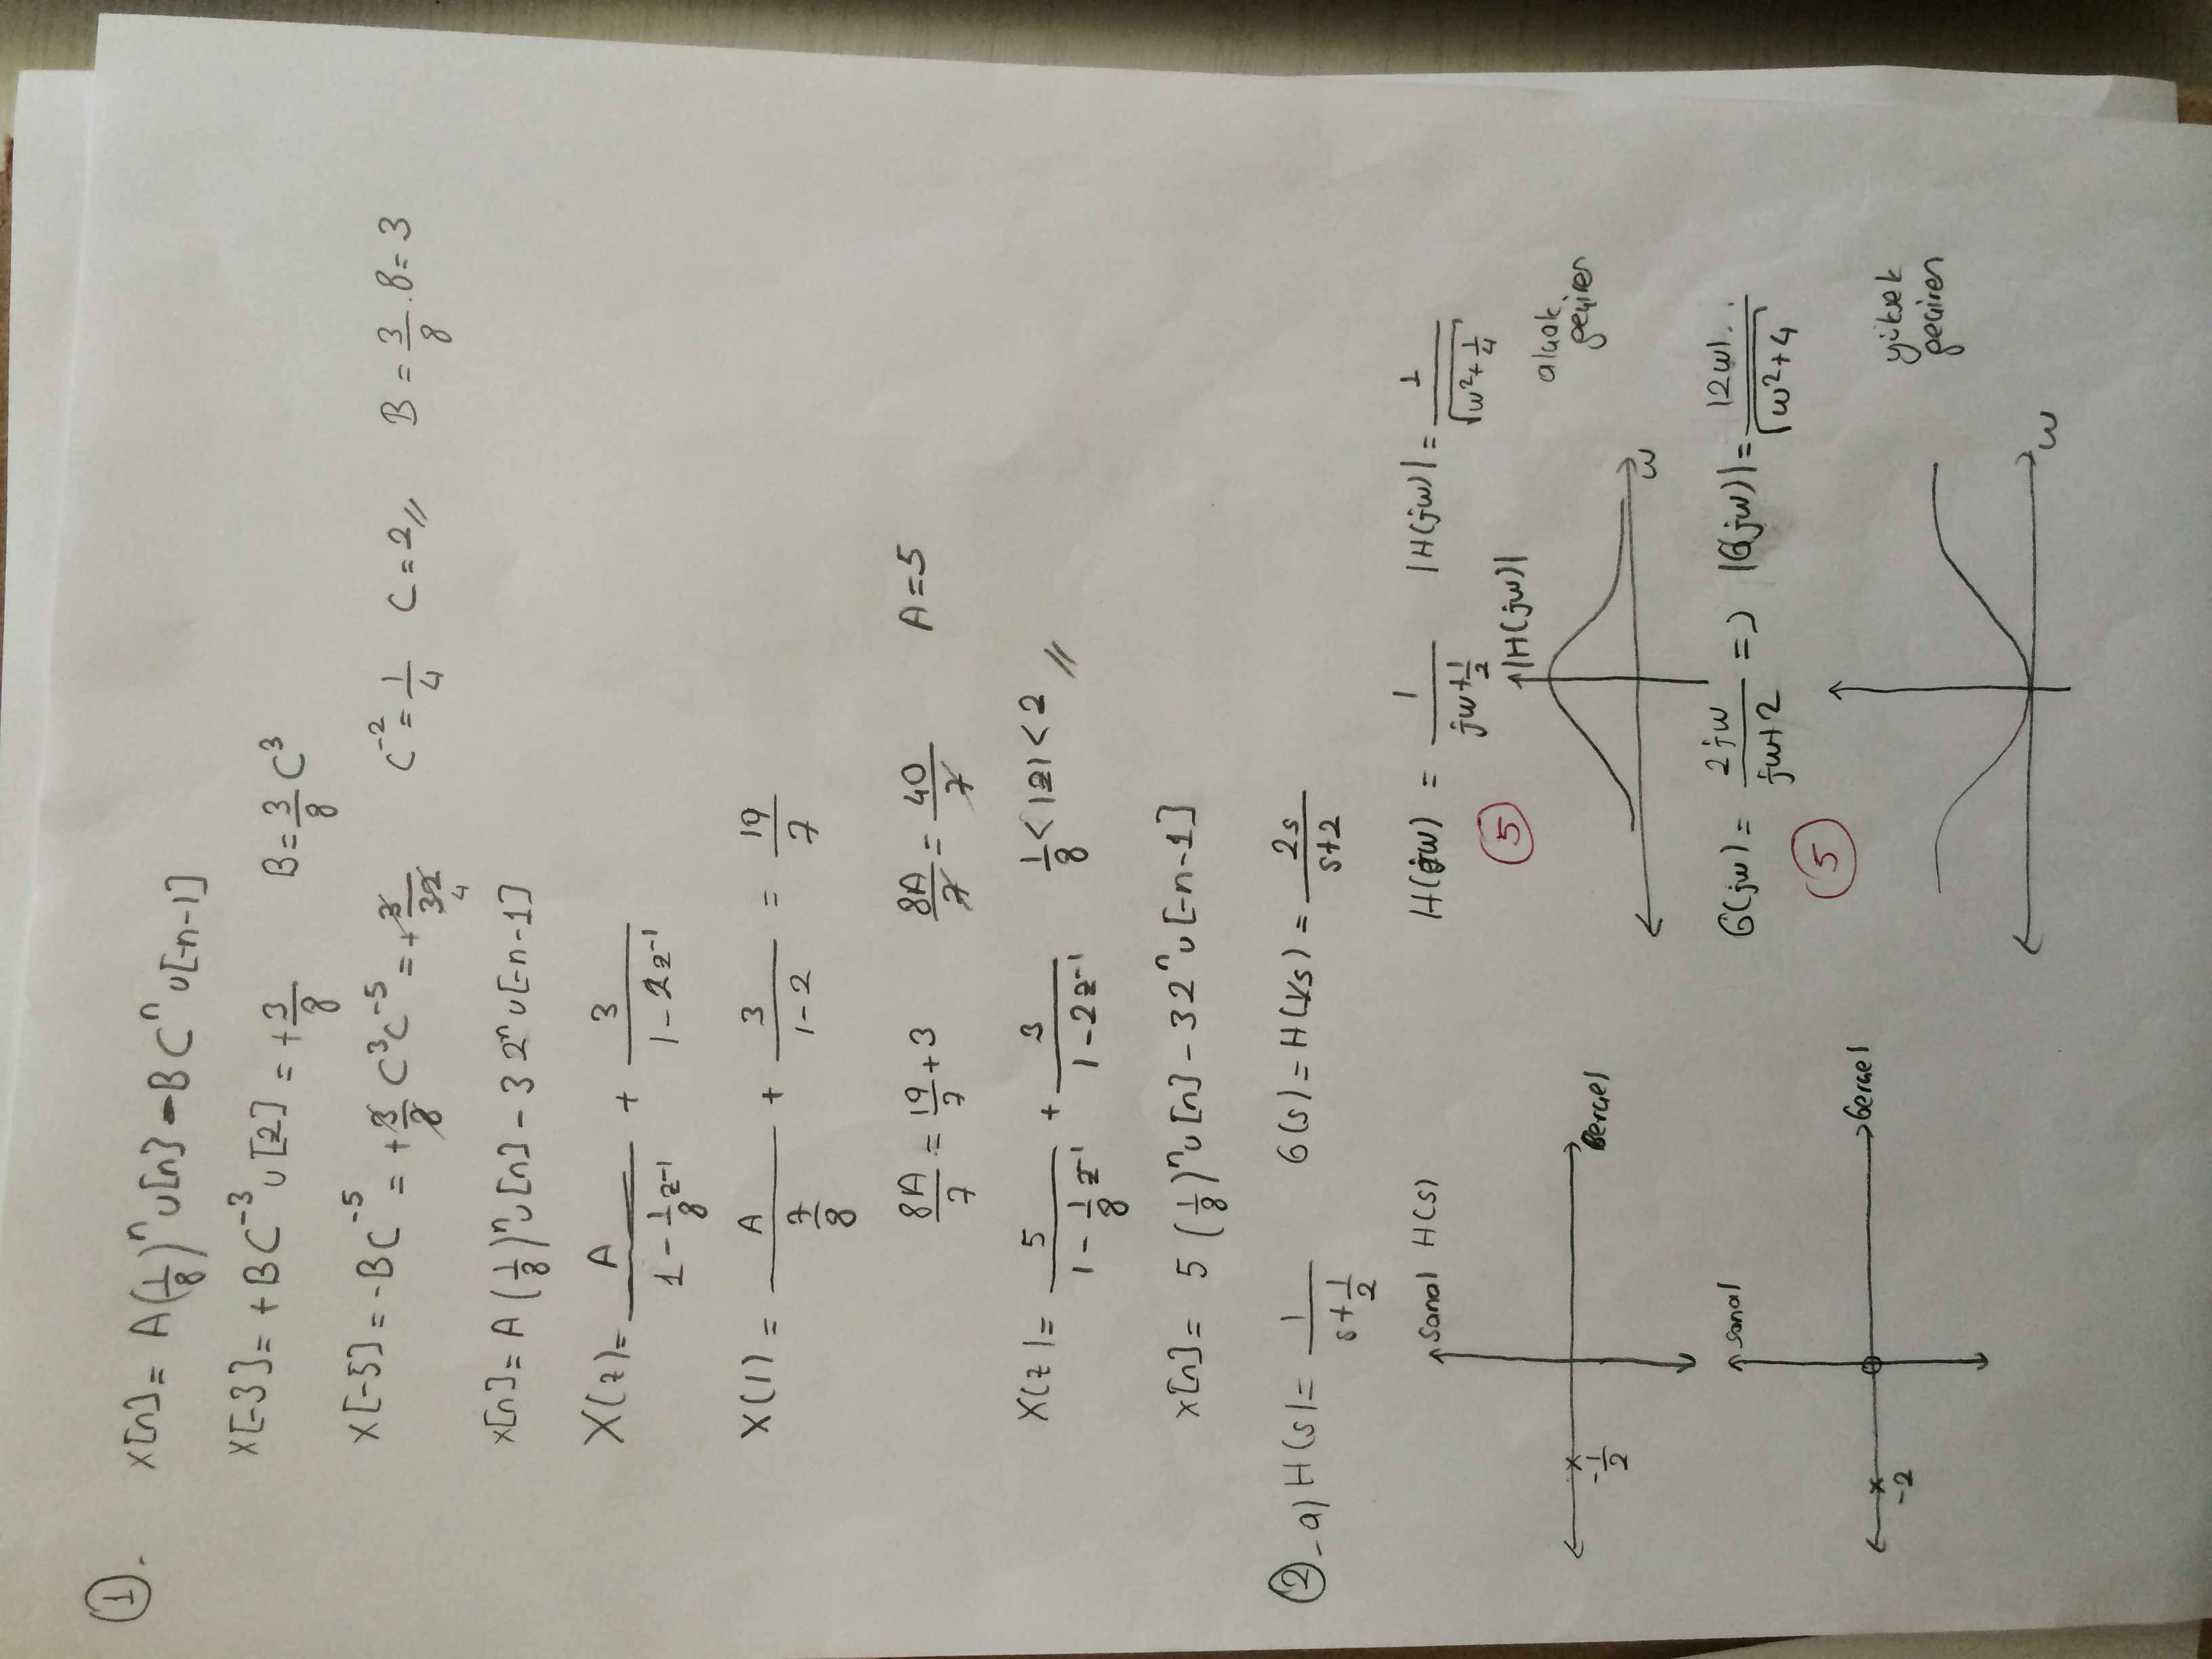 ①. x[n] = A(1/8)^n u[n] - B C^n u[-n-1]
x[-3] = +BC^-3 u[2] = +3/8   B = 3/8 C^3
x[-5] = -BC^-5 = +3/8 C^3 C^-5 = +3/32   4   C^-2 = 1/4   C = 2 //   B = 3/8 . 8 = 3
x[n] = A(1/8)^n u[n] - 3 2^n u[-n-1]
X(z) = A/(1 - 1/8 z^-1) + 3/(1 - 2z^-1)
X(1) = A/(7/8) + 3/(1-2) = 19/7
8A/7 = 19/7 + 3   8A/7 = 40/7   A = 5
X(z) = 5/(1 - 1/8 z^-1) + 3/(1 - 2z^-1)   1/8 < |z| < 2 //
x[n] = 5 (1/8)^n u[n] - 3 2^n u[-n-1]
②- a) H(s) = 1/(s + 1/2)   G(s) = H(1/s) = 2s/(s+2)
Sanal H(s)
Gerçel
-1/2
H(jw) = 1/(jw + 1/2)   |H(jw)| = 1/√(w^2 + 1/4)
5
|H(jw)|
alçak
geçiren
w
Sanal
Gerçel
-2
G(jw) = 2jw/(jw+2) => |G(jw)| = |2w|../√(w^2+4)
5
yüksek
geçiren
w